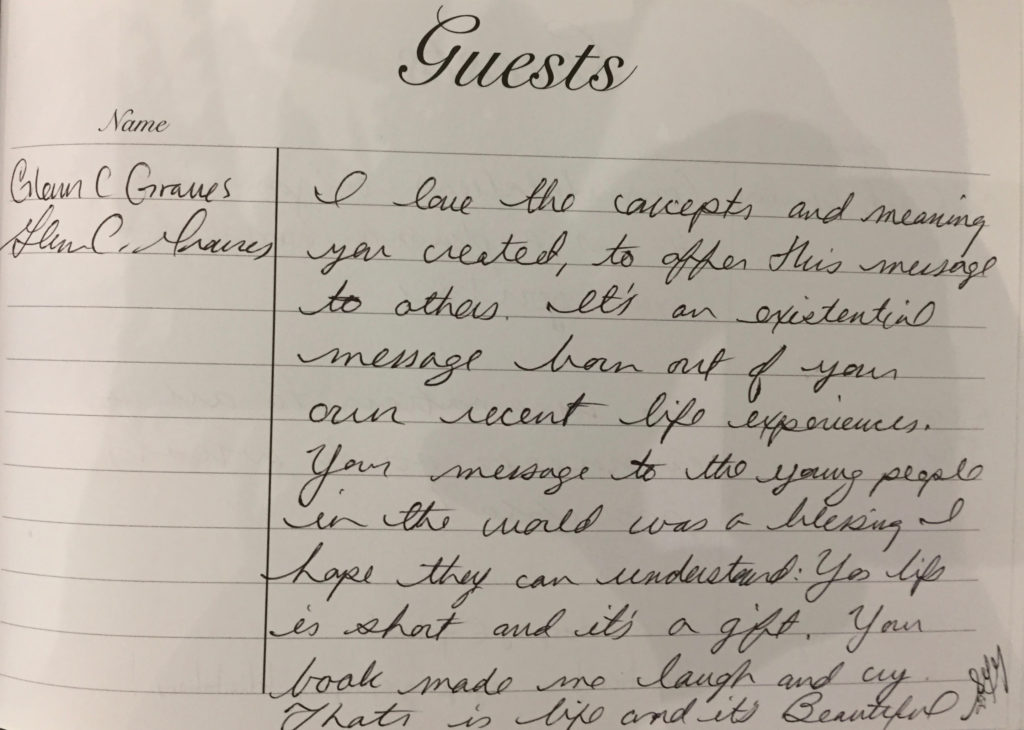 Guests
Name
Glenn C Graves
Glenn C. Graves
I love the concepts and meaning
you created, to offer this message
to others. It's an existential
message born out of your
own recent life experiences.
Your message to the young people
in the world was a blessing I
hope they can understand: Yes life
is short and it's a gift. Your
book made me laugh and cry.
Thats is life and it's Beautiful